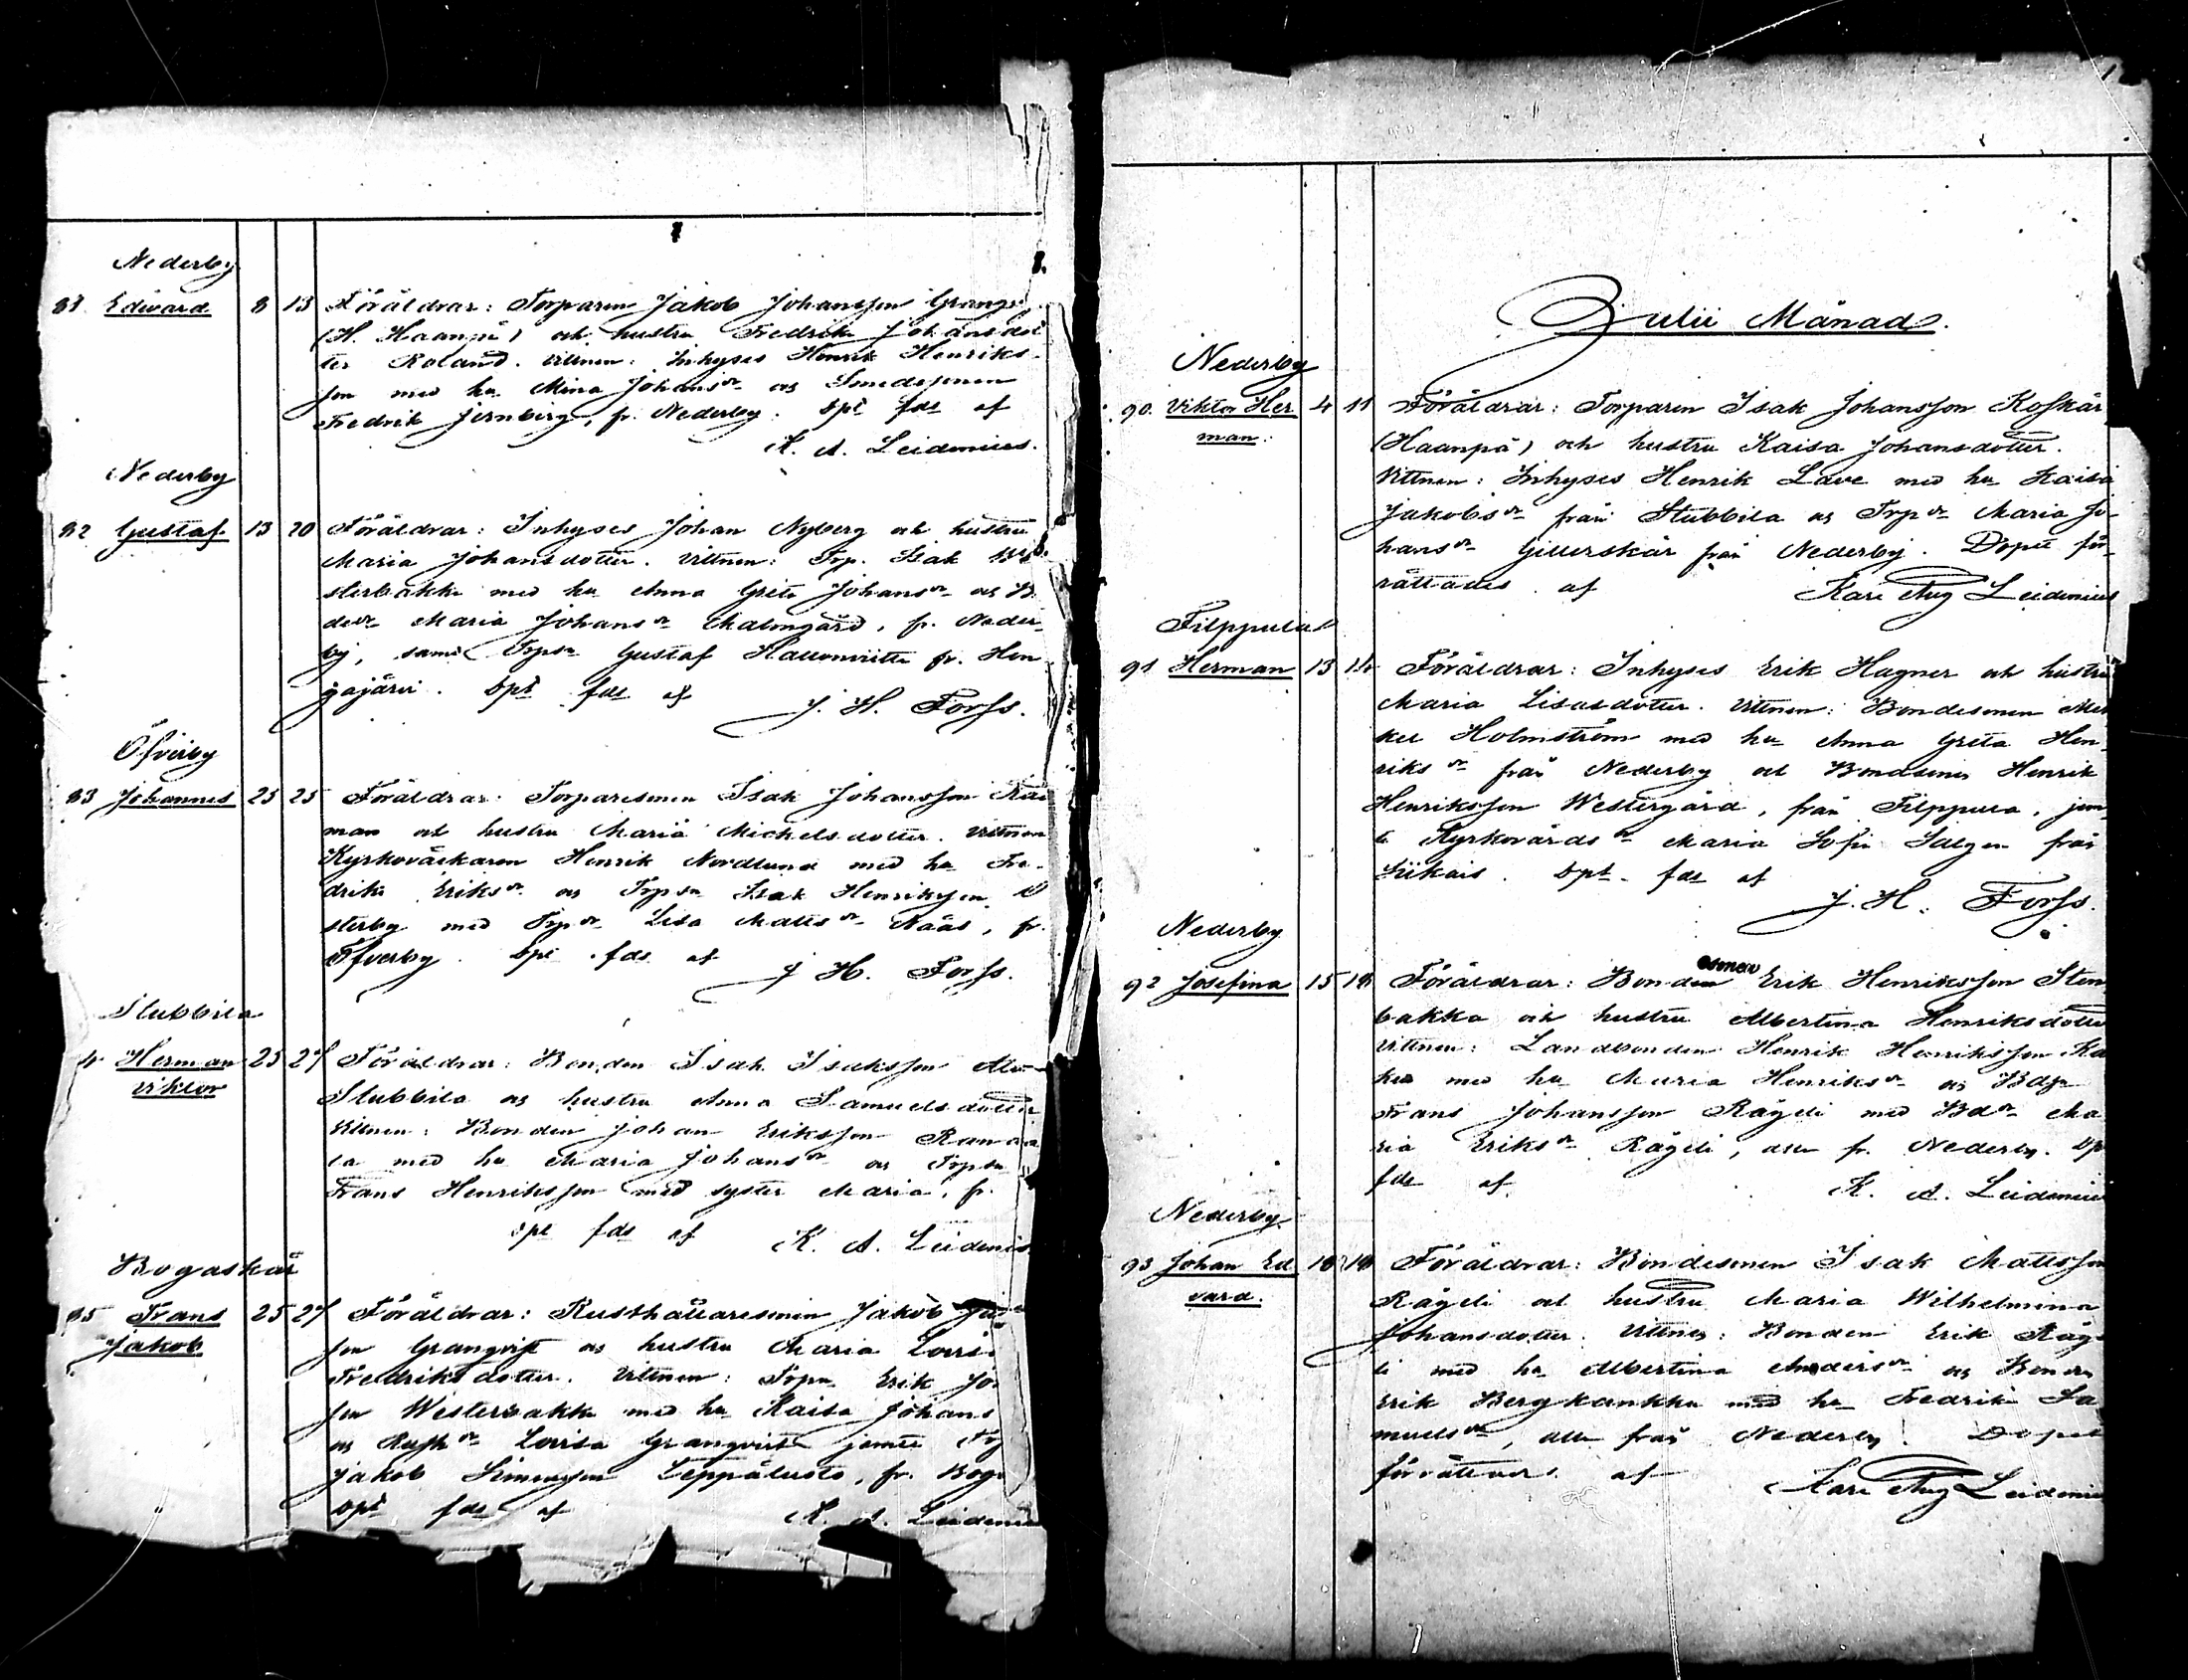 Nederby
81. Edvard 8 13 Föräldrar: Torparen Jakob Johansson Granqv
(H. Haanpä) och hustru Fredrika Johansdot
ter Roland. Vittnen: Inhyses Henrik Henriks-
son med hu Mina Johansdr och Smedssonen
Fredrik Jernberg, fr. Nederby. Dpt fds af
K. A. Leidenius.
Nederby
82 Gustaf 13 20 Föräldrar: Inhyses Johan Nyberg och hustru
Maria Johansdotter. Vittnen: Trp. Isak We
sterbakka med hu Anna Greta Johansdr och B.
dotr Maria Johansdr Malmgård, fr. Neder-
by, samt Trpsn Gustaf Kallonvitta fr. Hon
gajärvi. Dpt fds af
J. H. Forss.
Öfverby
83 Johannes 25 25 Föräldrar: Torparesonen Isak Johansson
man och hustru Maria Michelsdotter. Vittnen
Kyrkoväktaren Henrik Nordlund med hu Fre-
drika Eriksdr och Trpsn Isak Henriksson
sterby med Trpdr Lisa Mattsdr Nääs, fr.
Öfverby. Dpt fds af
J H. Forss.
Stubbila
4 Herman 25 27 Föräldrar: Bonden Isak Isaksson
Viktor
Stubbila och hustru Anna Samuelsdotter
Vittnen: Bonden Johan Eriksson
la med hu Maria Johansdr och Trpsn
Frans Henriksson med syster Maria, fr.
Dpt fds af K. A. Leidenius
Bogaskär
85 Frans 25 27 Föräldrar: Rusthållaresonen Jakob
Jakob
son Granqvist och hustru Maria Lovisa
Fredriksdotter. Vittnen: Trpn Erik Jo
son Westerbakka med hu Kaisa Johans
och Rusthdr Lovisa Granqvist jemte Trp
Jakob Simonsson Leppäluoto, fr. Boga
Dpt fds af K. A. Leidenius
Julii Månad.
Nederby
90. Viktor Her 4 11 Föräldrar: Torparen Isak Johansson Koskär
man.
(Haanpä) och hustru Kaisa Johansdotter.
Vittnen: Inhyses Henrik Lave med hu Kaisa
Jakobsdr från Stubbila och Trpdr Maria Jo-
hansdr Gillerskär från Nederby. Dopet för-
rättades af Karl Aug Leidenius
Filppula
91 Herman 13 14 Föräldrar: Inhyses Erik Hagner och hustru
Maria Lisasdotter. Vittnen: Bondesonen Mi
kel Holmström med hu Anna Greta Hen-
riksdr från Nederby och Bondesonen Henrik
Henriksson Westergård, från Filppula, jem-
te Kyrkovärdsdr Maria Sofia Salgen från
Siikais. Dpt. fds af
J. H. Forss.
Nederby
92 Josefina 15 18 Föräldrar: Bondesonen Erik Henriksson Sten
bakka och hustru Albertina Henriksdotter
Vittnen: Landbonden Henrik Henriksson
med hu Maria Henriksdr och Bdsn
Frans Johansson Rägeli med Bddr Ma
ria Eriksdr Rägeli, alla fr. Nederby. Dp
fds af K. A. Leidenius
Nederby
93 Johan Ed 18 18 Föräldrar: Bondesonen Isak Mattsson
vard.
Rägeli och hustru Maria Wilhelmina
Johansdotter. Vittnen: Bonden Erik Räge
li med hu Albertina Andersdr och Bonden
Erik Bergkankka med hu Fredrika Sa
muelsdr, alla från Nederby. Dopet
förrättades af Karl Aug Leidenius